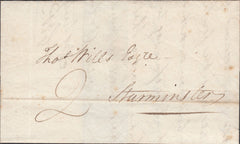 Thos Wills Esqre
2 Sturminster